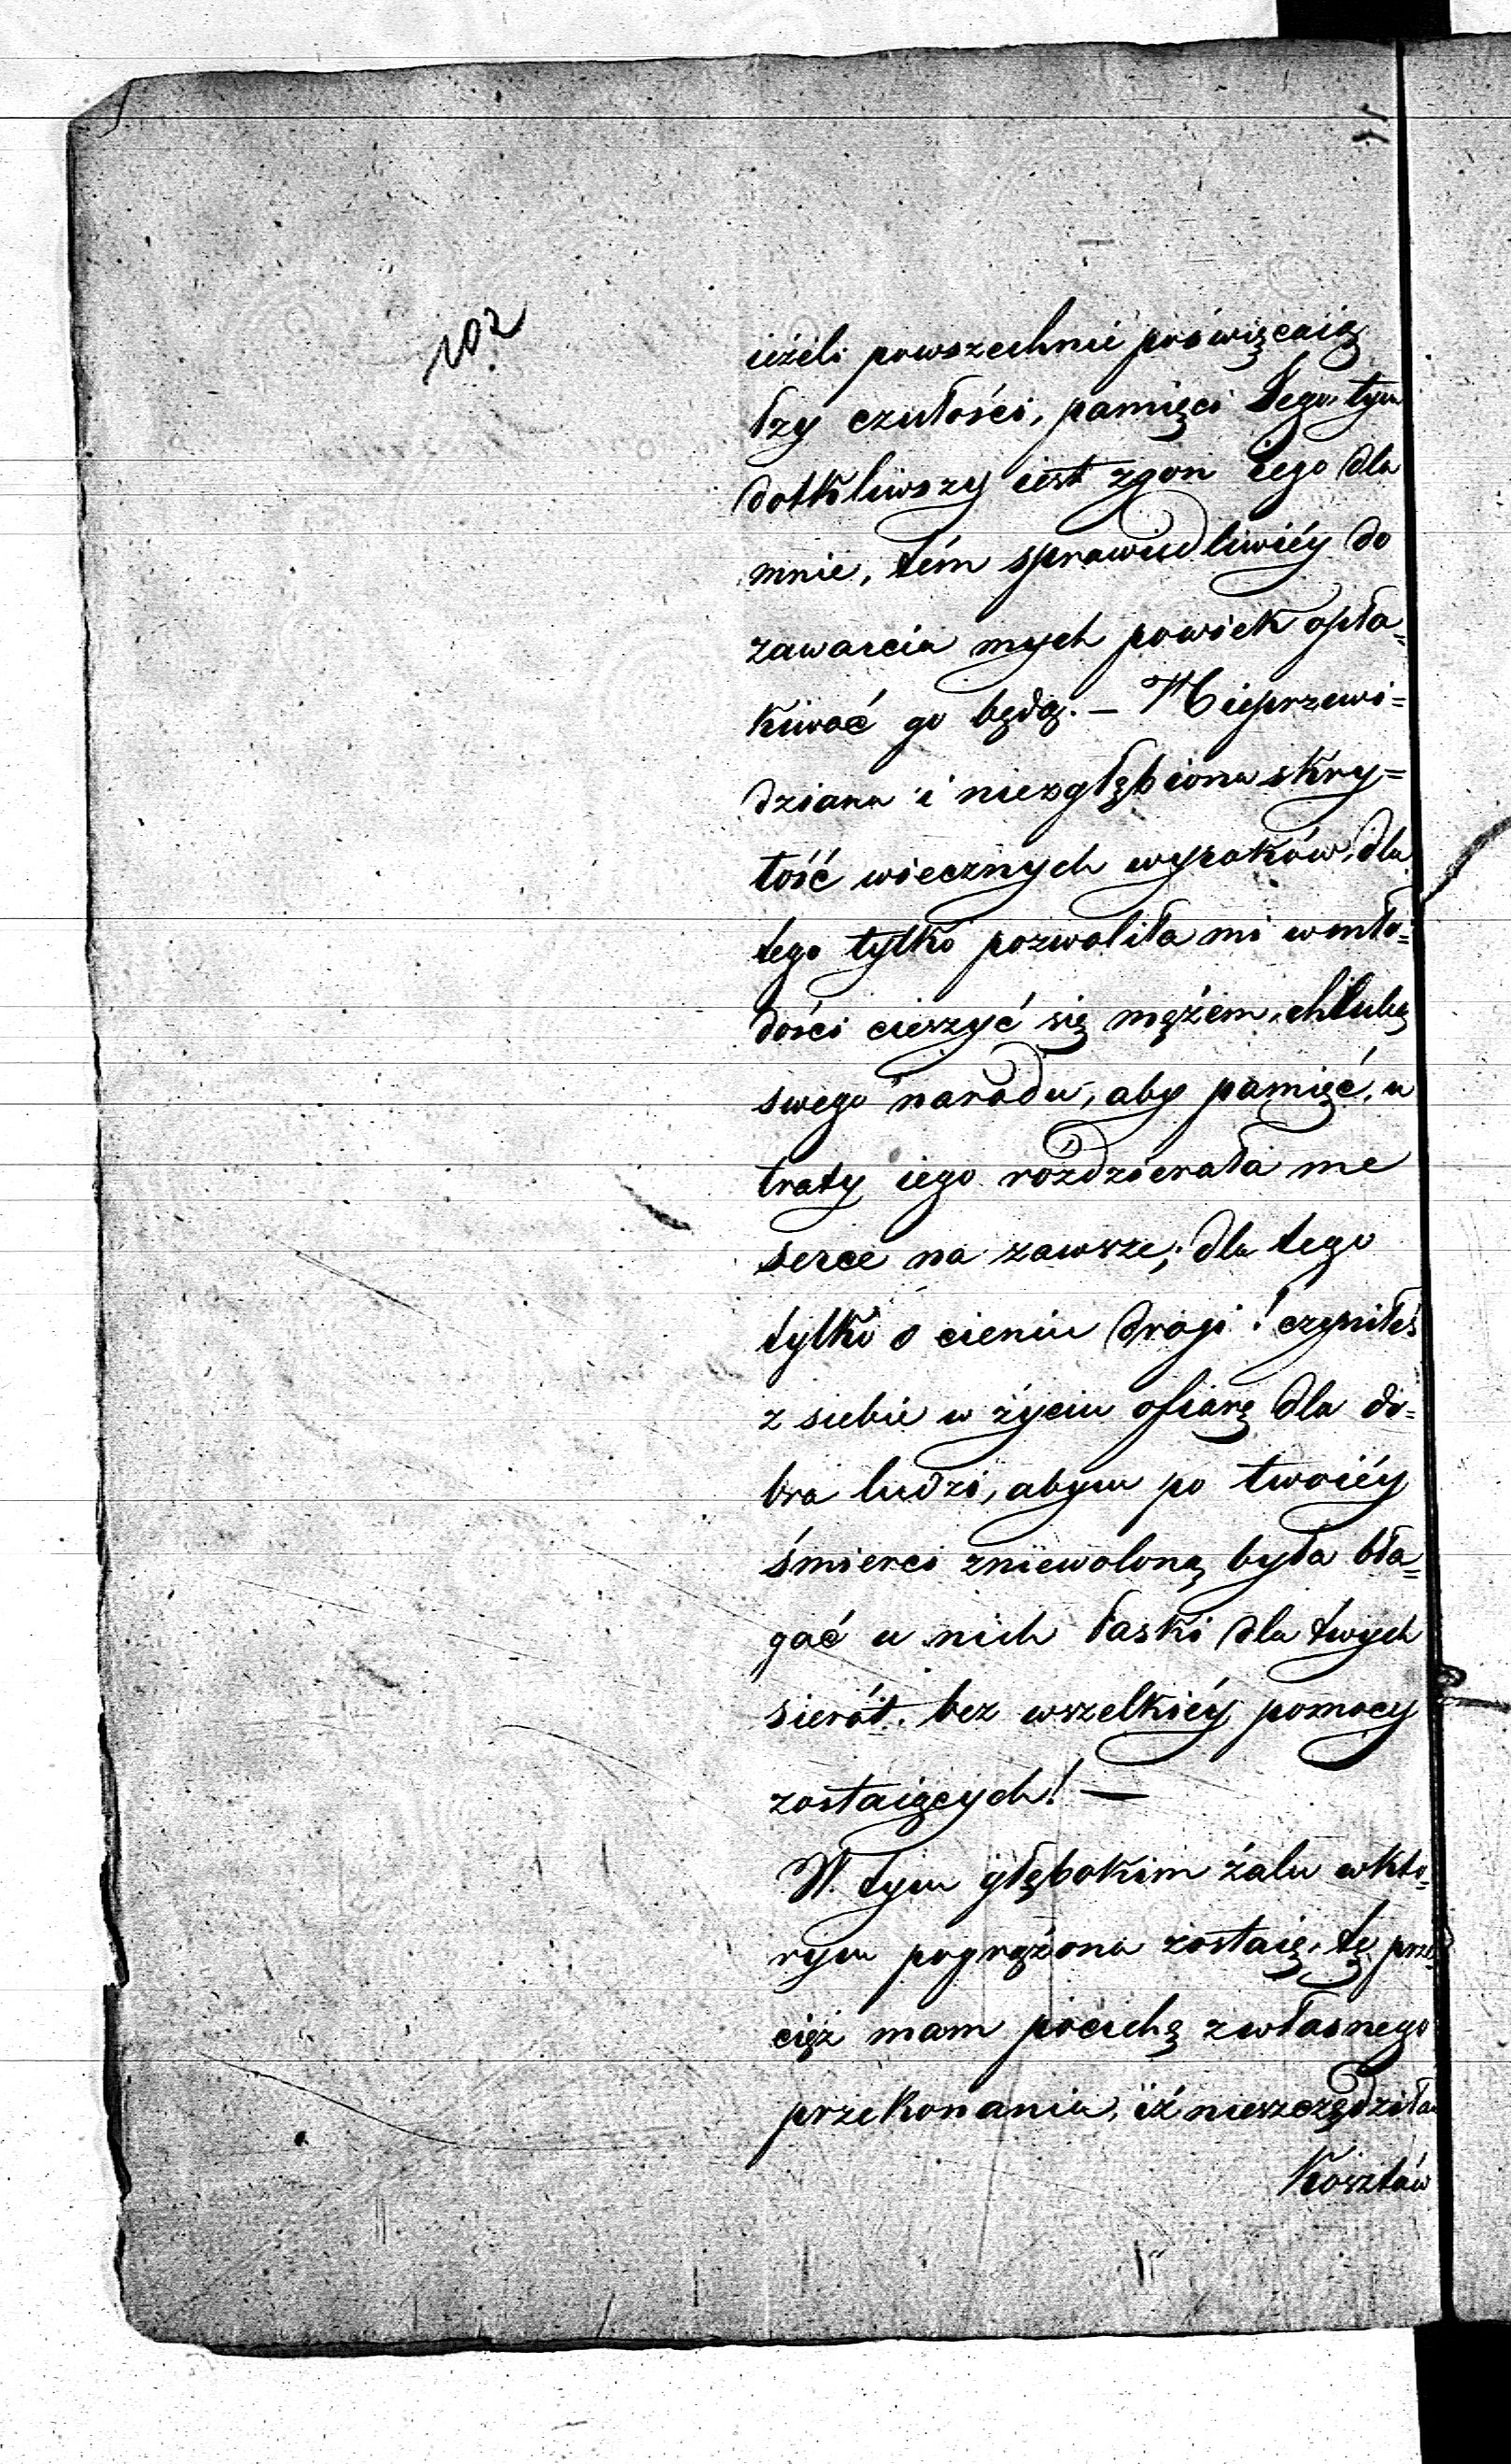 102
ieżeli powszechnie poświęcaią
łzy czułości, pamięci Jego, tym
dotkliwszy iest zgon iego dla
mnie, tém sprawiedliwiéy do
zawarcia mych powiek opła=
kiwać go będę. — Nieprzewi=
dziana i niezgłębiona skry=
tość wiecznych wyroków, dla
tego tylko pozwoliła mi w mło=
dości cieszyć się mężem, chlubą
swego narodu, aby pamięć, u
traty iego rozdzierała me
serce na zawsze; dla tego
tylko o cieniu drogi! czyniłeś
z siebie w życiu ofiarę dla do=
bra ludzi, abym po twoiéy
śmierci zniewoloną była bła=
gać u nich łaski dla twych
sierót bez wszelkiéy pomocy
zostaiących! —
W tym głębokim żalu w któ=
rym pogrążona zostaię, tę prze=
cięż mam pociechę z własnego
przekonania, iż nieszczędziła
Kosztów